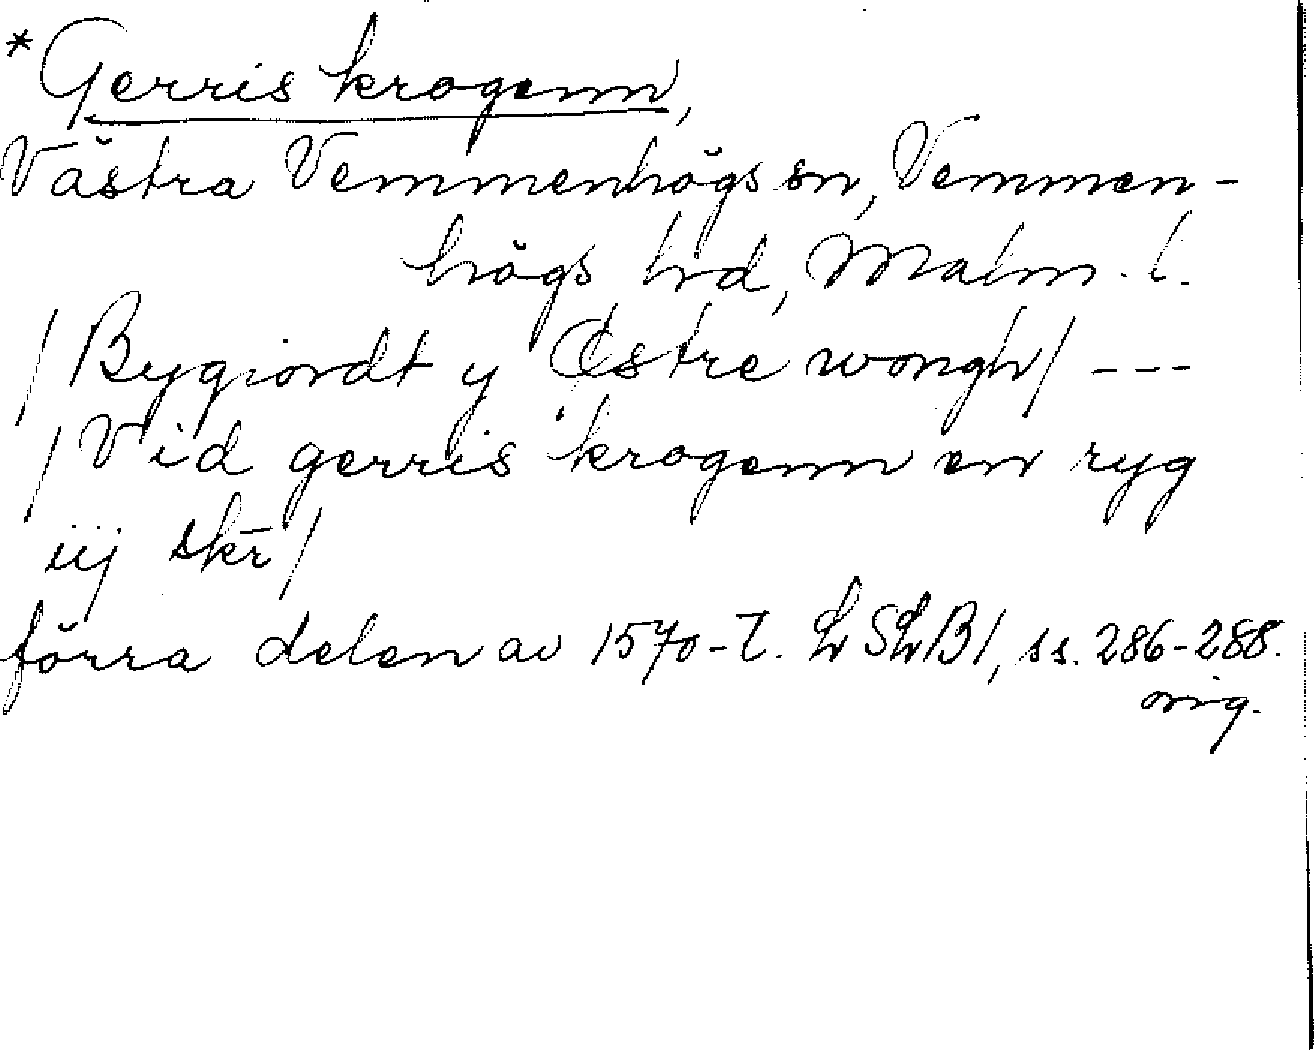 *Gerris krogenn,
Västra Vemmenhögs sn, Vemmen-
högs hd, Malm. l.
/Bygiordt y Østre wongh/ ---
/Vid gerris krogenn en ryg
iij skr̄/
förra delen av 1570-t. LSLB1, ss. 286-288.
orig.